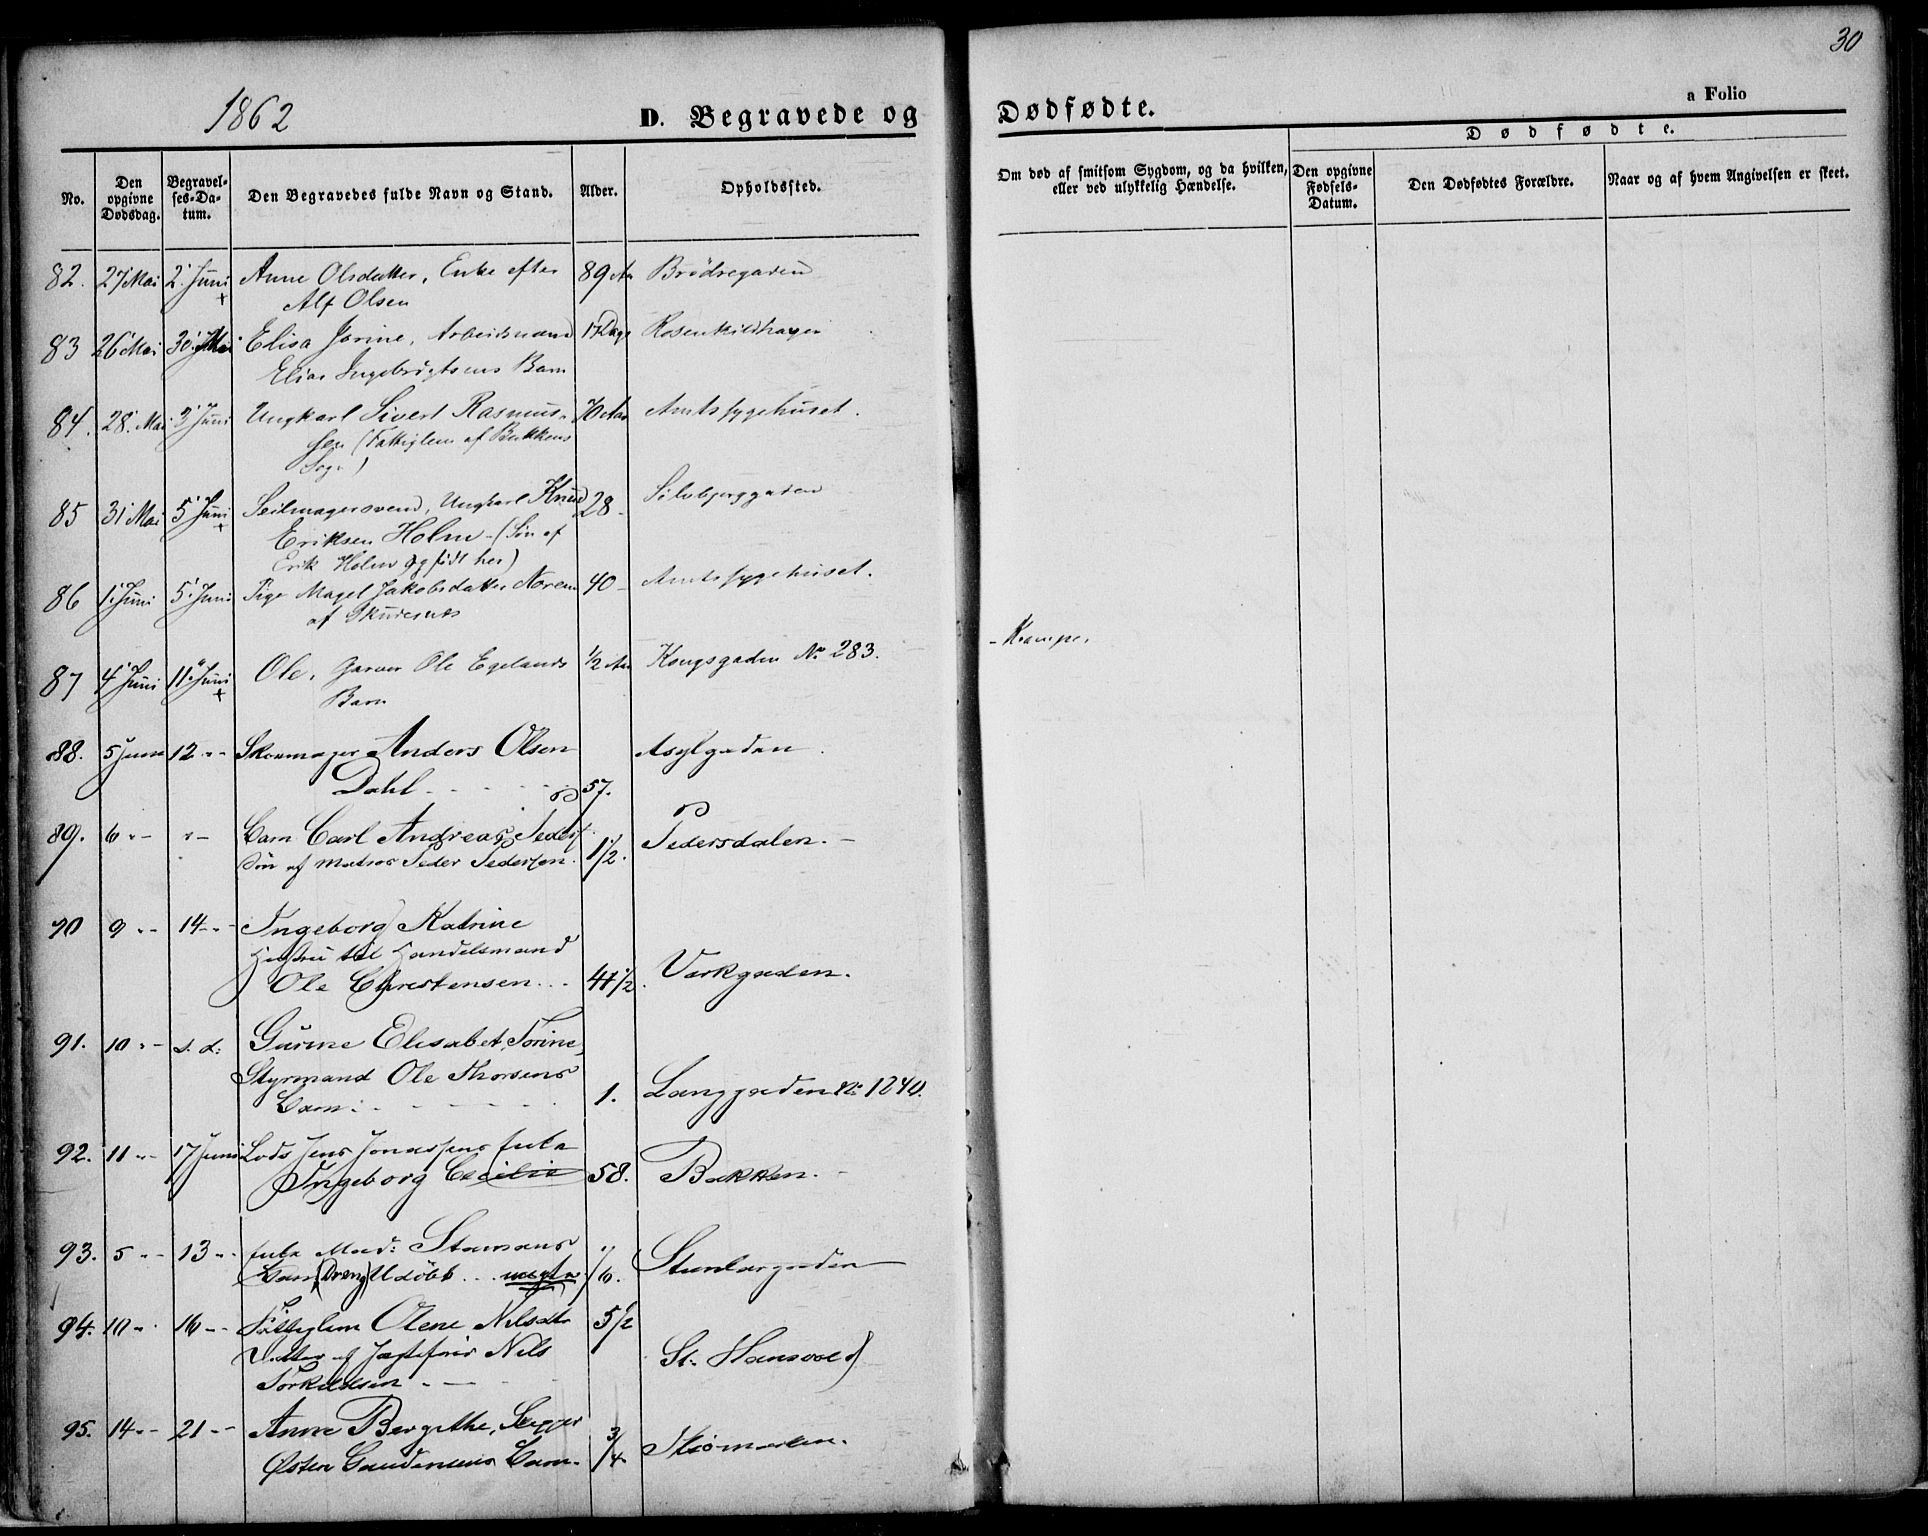 30
1862 D. Begravede og Dødfødte. a Folio
Dødfødte.
No. Den opgivne Dødsdag. Begravelses-Datum. Den Begravedes fulde Navn og Stand. Alder. Opholdssted. Om død af smitsom Sygdom, og da hvilken, eller ved ulykkelig Hændelse. Den opgivne Fødsels-Datum. Den Dødfødtes Forældre. Naar og af hvem Angivelsen er skeet.
82. 27 Mai 2' Juni Anne Olsdatter, Enke efter 89 Aar Brødregaden
+ Alf Olsen
83 26 Mai 30' Mai Elisa Jorine, Arbeidsmand 17 Dage Rosenkildhagen
Elias Ingebrigtsens Barn
84. 28' Mai 3' Juni Ungkarl Sivert Rasmus- 70 Aar Amtssygehuset.
sen (Fattiglem af Bukkens
Sogn)
85 31' Mai 5' Juni Seilmagersvend, Ungkarl Knud 28 - Sølvbjerggaden
+ Eriksen Holm - (Søn af
Erik Holm og født her)
86 1' Juni 5' Juni Pige Magel Jakobsdatter Norem 40 - Amtssygehuset.
af Skudesnes
- Krampe.
87 4' Juni 11' Juni Ole, Garver Ole Egelands 1/2 Aar Kongsgaden No 283.
+ Barn
88. 5 Juni 12 " - Skoemager Anders Olsen Asylgaden
Dahl - - - - 57.
89. 6 " - " - Barn Carl Andreas Peders 1 1/2. Pedersdalen. -
Søn af Matros Peder Pedersen.
90 9 " - 14 - " - Ingeborg Katrine
Hustru til Handelsmand
Ole Christensen . . 41 1/2. Verkgaden.
91. 10 " - s. d: Gurine Elisabet, Torine,
Styrmand Ole Thorsens
Barn . - - - 1. Langgaden No 1240.
92. 11 " - 17 Juni Lods Jens Jonassens Enke
Ingeborg Cecilie 58. Bakken. -
93. 5 " - 13 " - Enke Mad:
Barn (Dreng) Udøbt . . . uægte
94. 10 " . 16 " - Fattiglem Olene Nilsdtr 5 1/2
Datter af Nils St. Hansvold
Torkildsen - - -
95. 14 " - 21 " - Anne Bergithe, 3/4
Østen Gaudensens Barn.